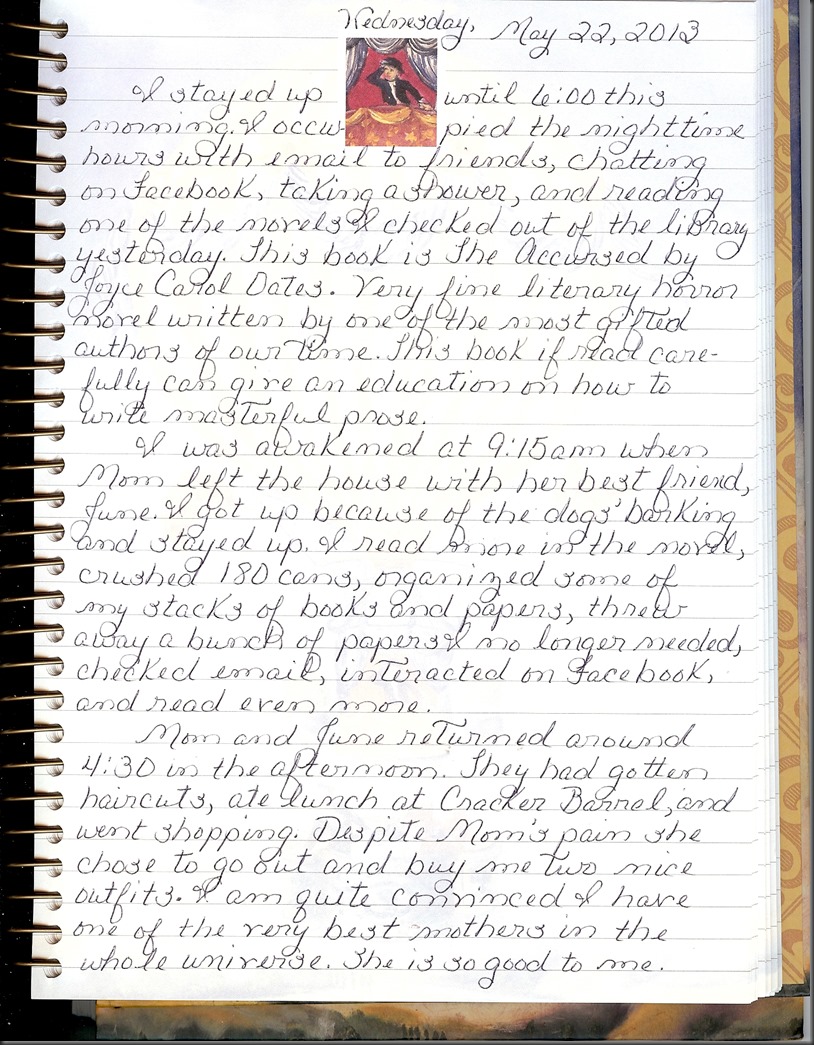 Wednesday, May 22, 2013
I stayed up until 6:00 this
morning. I occu- pied the nighttime
hours with email to friends, chatting
on Facebook, taking a shower, and reading
one of the novels I checked out of the library
yesterday. This book is The Accursed by
Joyce Carol Oates. Very fine literary horror
novel written by one of the most gifted
authors of our time. This book if read care-
fully can give an education on how to
write masterful prose.
I was awakened at 9:15am when
Mom left the house with her best friend,
June. I got up because of the dogs' barking
and stayed up. I read more in the novel,
crushed 180 cans, organized some of
my stacks of books and papers, threw
away a bunch of papers I no longer needed,
checked email, interacted on Facebook,
and read even more.
Mom and June returned around
4:30 in the afternoon. They had gotten
haircuts, ate lunch at Cracker Barrel, and
went shopping. Despite Mom's pain she
chose to go out and buy me two nice
outfits. I am quite convinced I have
one of the very best mothers in the
whole universe. She is so good to me.